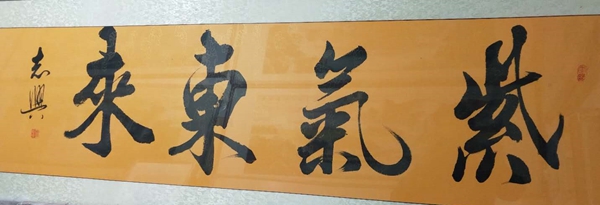 紫氣東來
志興